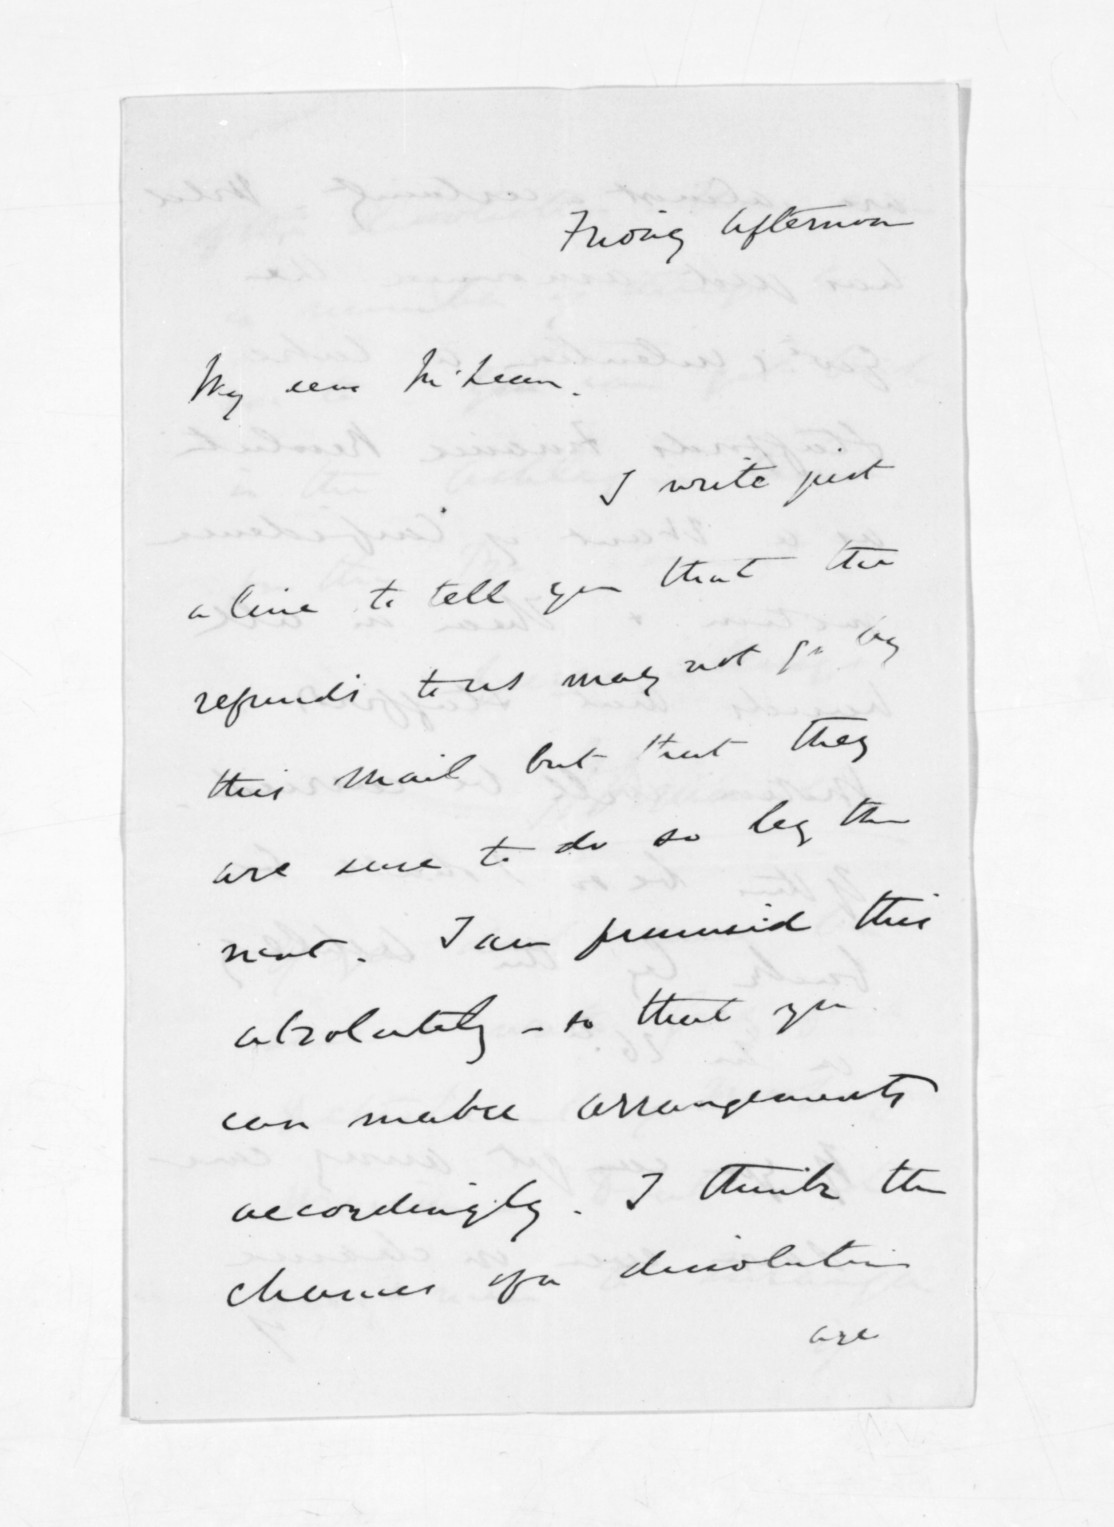 Friday Afternoon
My dear McLean.
I write just
a line to tell you that the
refunds may not go by
this mail but that they
are sure to do so by the
next. I am promised this
absolutely - so that you
can make arrangements
accordingly. I think the
chances of a dissolution
are